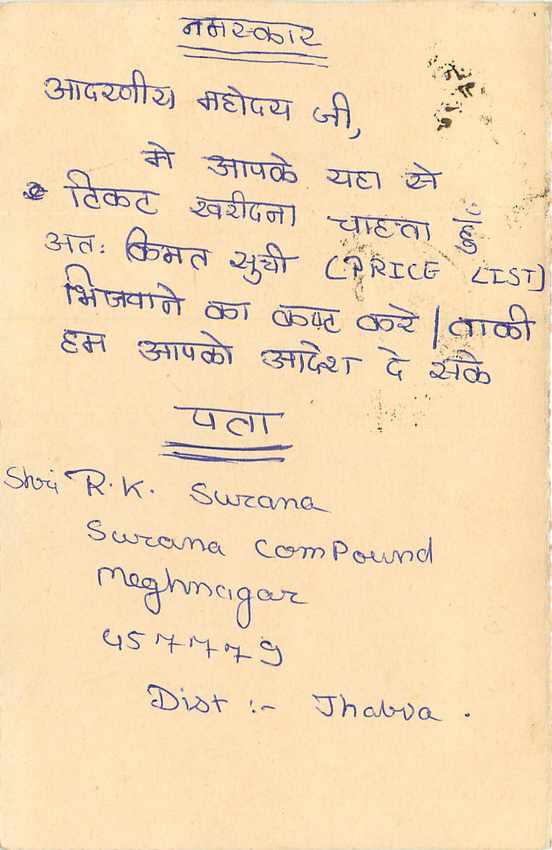 नमस्कार
आदरणीय महोदय जी,
मे आपके यहा से
टिकट खरीदना चाहता हुँ
अतः किमत सुची (PRICE LIST)
भिजवाने का कष्ट करे | ताकी
हम आपको आदेश दे सके
पता
Shri R.K. Surana
Surana Compound
Meghnagar
457779
Dist :- Jhabva .